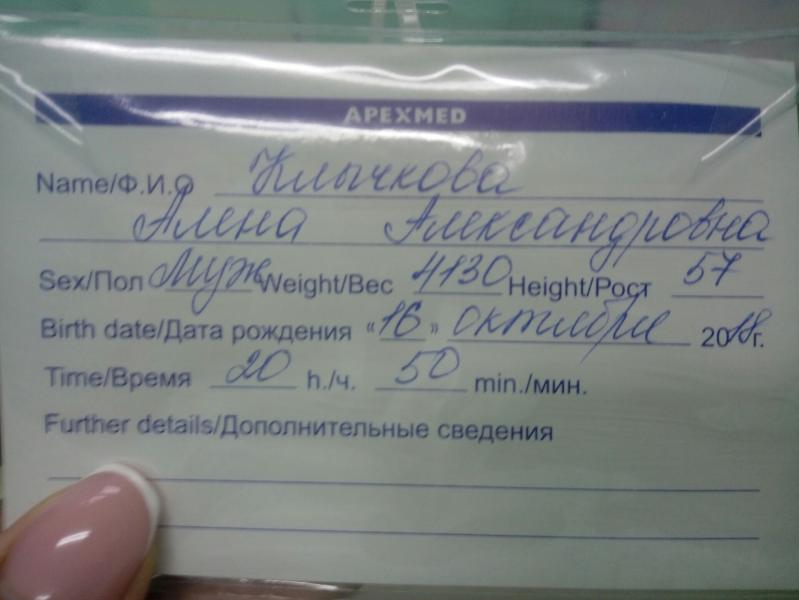 APEXMED
Name/Ф.И.О Клычкова
Алена Александровна
Sex/Пол Муж Weight/Вес 4130 Height/Рост 57
Birth date/Дата рождения «16» октября 2018г.
Time/Время 20 h./ч. 50 min./мин.
Further details/Дополнительные сведения